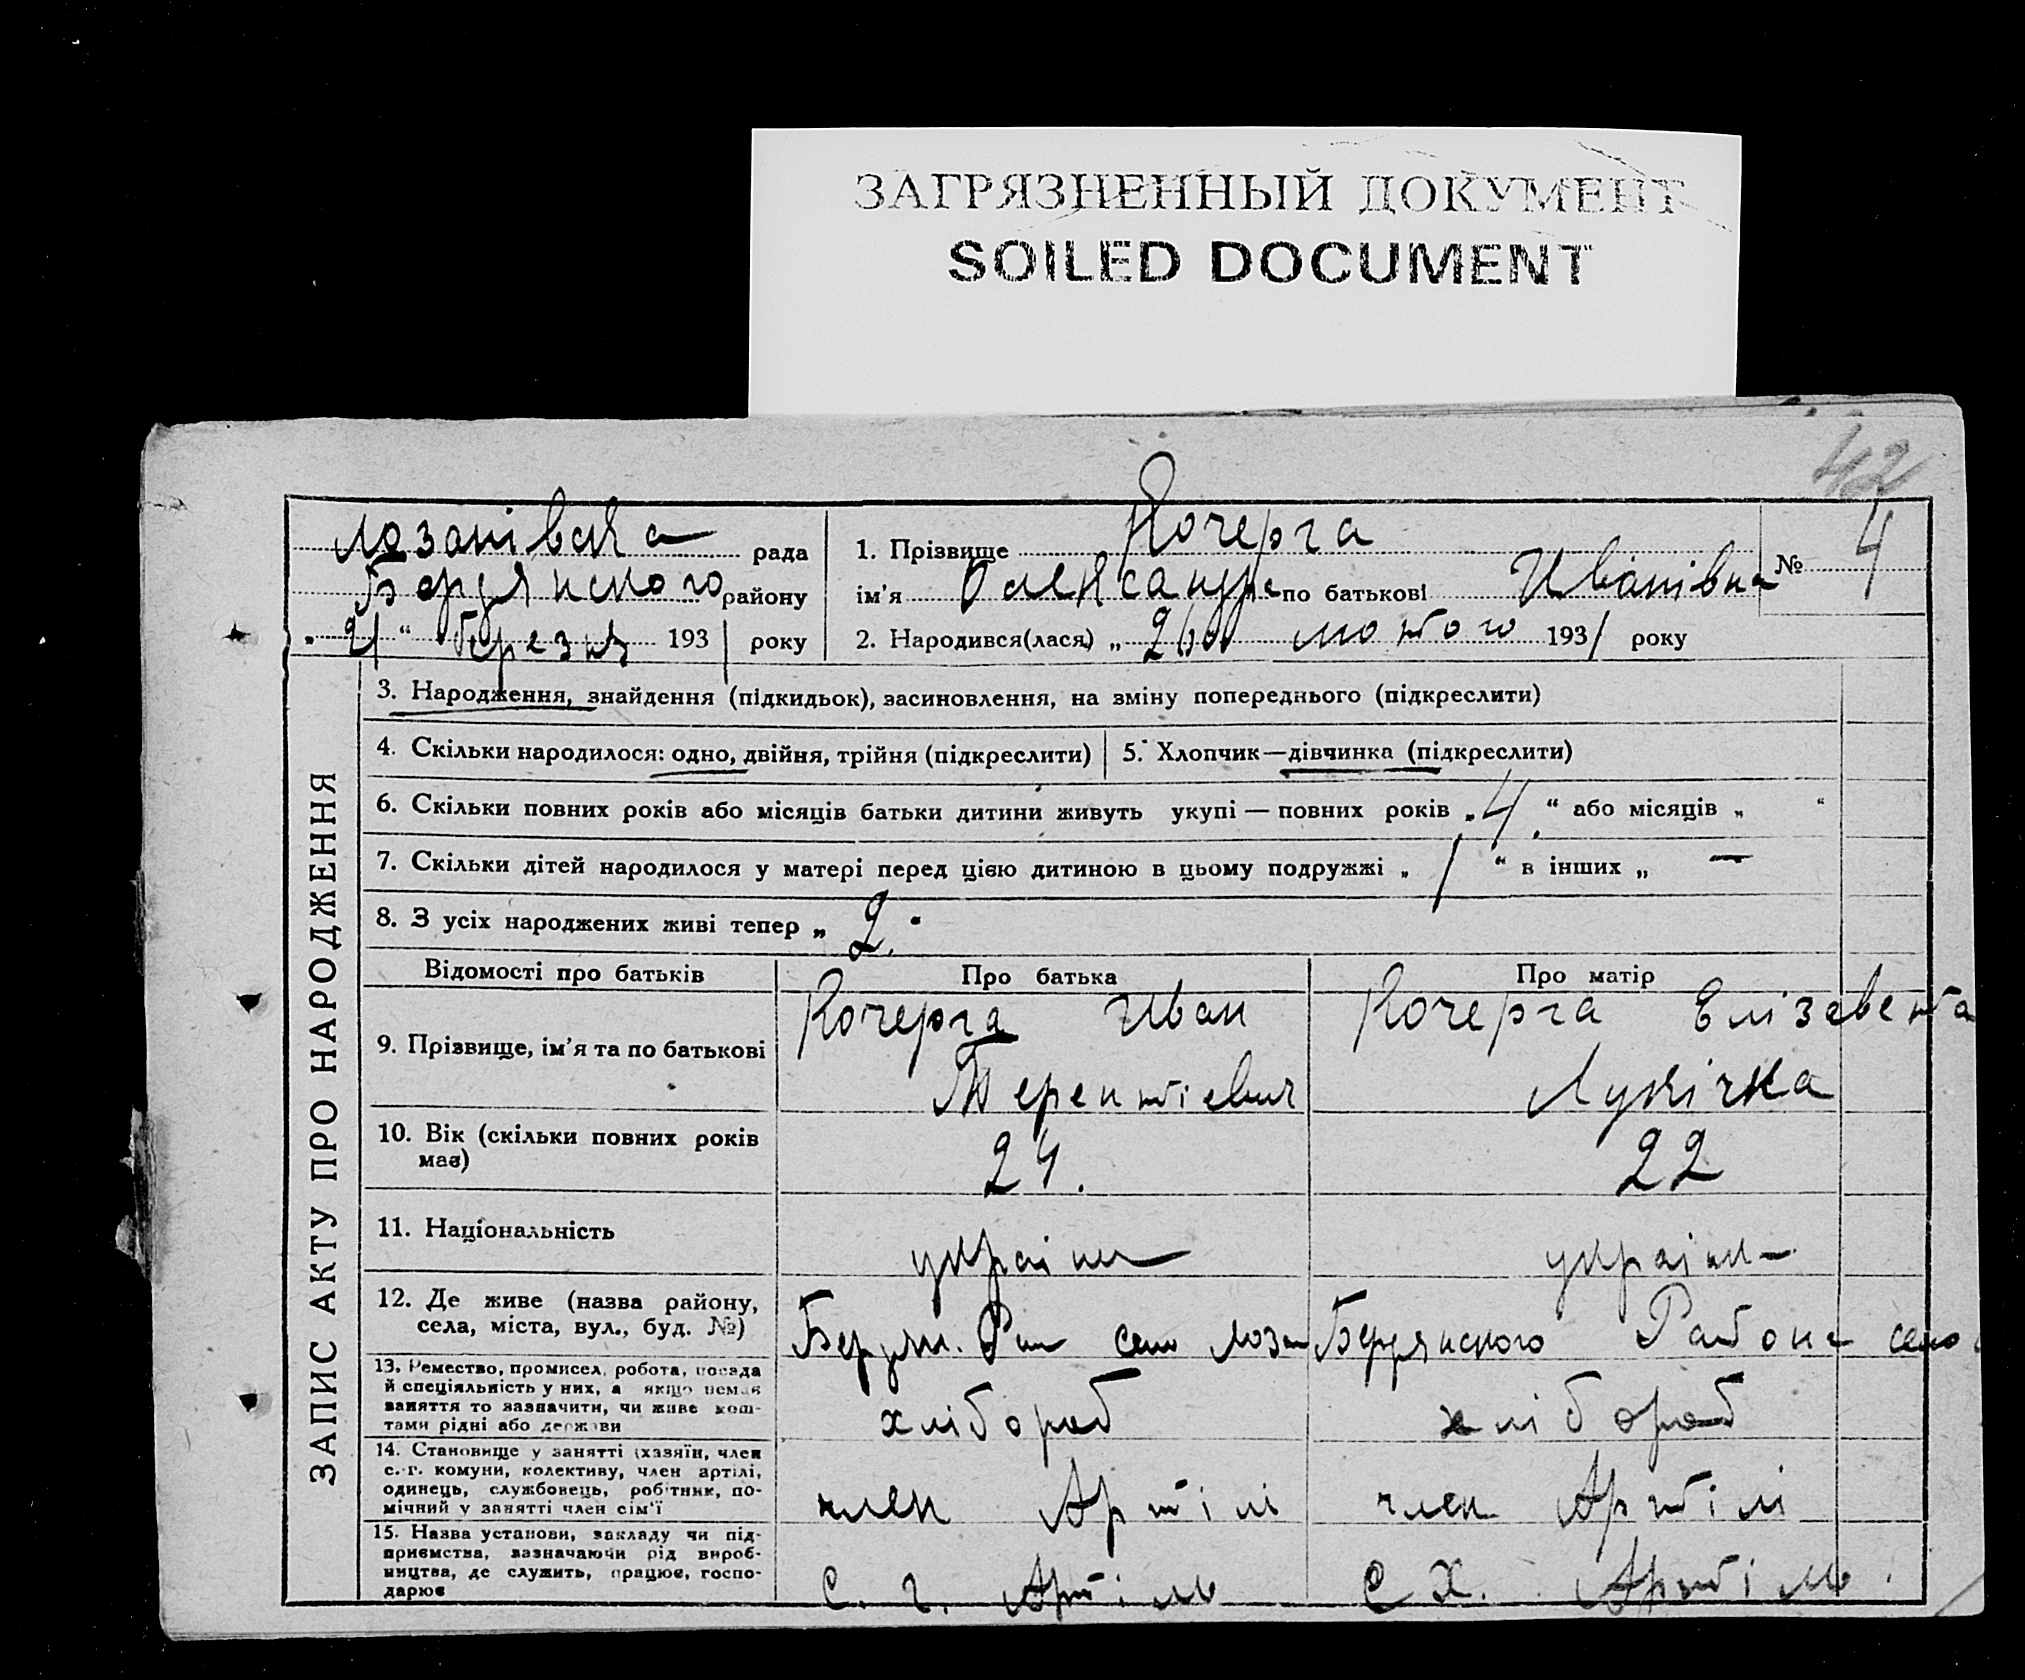 ЗАГРЯЗНЕННЫЙ ДОКУМЕНТ
SOILED DOCUMENT
42
рада
Бердянского району
" 21 " березня 1931 року
1. Прізвище Кочерга
ім'я Олександра по батькові Иванівна
2. Народився(лася) „ 26го лютого 1931 року
№ 4
ЗАПИС АКТУ ПРО НАРОДЖЕННЯ
3. Народження, знайдення (підкидьок), засиновлення, на зміну попереднього (підкреслити)
4. Скільки народилося: одно, двійня, трійня (підкреслити)
5. Хлопчик—дівчинка (підкреслити)
6. Скільки повних років або місяців батьки дитини живуть укупі — повних років „ 4 “ або місяців „ “
7. Скільки дітей народилося у матері перед цією дитиною в цьому подружжі „ 1 “ в інших „ —
8. З усіх народжених живі тепер „ 2.
Відомості про батьків
Про батька
Про матір
9. Прізвище, ім'я та по батькові
Кочерга Иван
Терентіевич
Кочерга Елізавета
Лукічна
10. Вік (скільки повних років
має)
24.
22
11. Національність
україн
україн
12. Де живе (назва району,
села, міста, вул., буд. №)
Бердян. село Лозан
Бердянского Района село
13. Ремество, промисел, робота, посада
й спеціяльність у них, а якщо немає
заняття то зазначити, чи живе кош-
тами рідні або держави
хлібороб
хлібороб
14. Становище у занятті (хазяїн, член
с.-г. комуни, колективу, член артілі,
одинець, службовець, робітник, по-
мічний у занятті член сім'ї
член Артілі
член Артілі
15. Назва установи, закладу чи під-
приємства, зазначаючи рід вироб-
ництва, де служить, працює, госпо-
дарює
с. г. Артіль
С Х. Артіль.